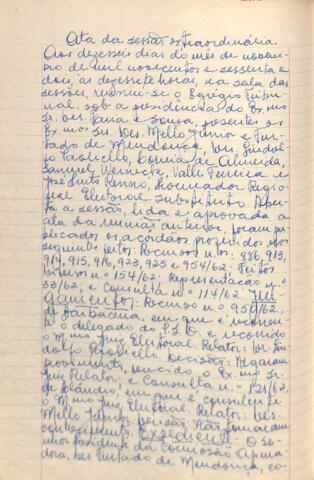 Ata da sessão extraordinária
Aos dezesseis dias do mês de novem-
bro de mil novecentos e sessenta e
dois, às dezessete horas, na sala das
sessões, reuniu-se o Egrégio Tribu-
nal, sob a presidência do Ex.mo
Sr. Des. Faria e Sousa, presentes os
Ex.mos Srs. Des. Mello Júnior e Fur-
tado de Mendonça, Drs. Lindol-
fo Paoliello, Correia de Almeida,
Samuel Werneck, Valle Ferreira e
José Procurador Regio-
nal Eleitoral Substituto. Aber-
ta a sessão, lida e aprovada a
ata da reunião anterior, foram pu-
blicados os acórdãos proferidos nos
seguintes feitos: Recursos n.os: 886, 913,
914, 915, 916, 923, 925 e 954/62. Feitos
Diversos n.º 154/62. Representação n.º
33/62, e Consulta n.º 114/62. Jul-
gamentos: Recurso n.º 950/62,
de Barbacena, em que é recorren-
te o delegado do P.S.D. e recorrido
o M.mo Juiz Eleitoral. Relator: Dr. Lin-
dolfo Paoliello. Decisão: Negaram
provimento, vencido o Ex.mo Sr.
Juiz Relator; e Consulta n.º 121/62,
de Cláudio, em que é consulente
o M.mo Juiz Eleitoral. Relator: Des.
Mello Júnior. Decisão: Não tomaram
conhecimento. Expediente: O Se-
nhor Presidente da Comissão Apura-
dora, Des. Furtado de Mendonça, co-